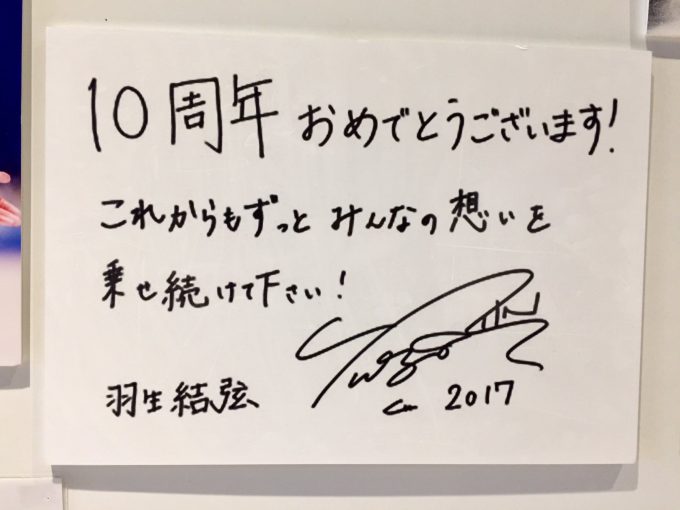 10周年 おめでとうございます!
これからもずっと みんなの想いを
乗せ続けて下さい!
羽生結弦
2017